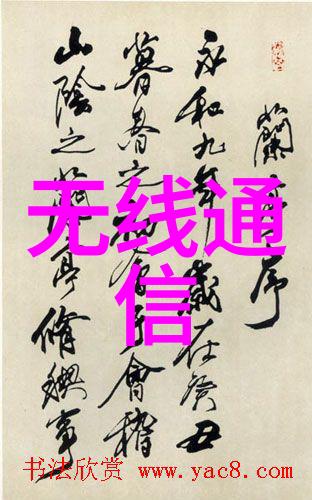 蘭亭序
永和九年歲在癸丑
暮春之初會于會稽
山陰之蘭亭脩禊事
无线通
信
书法欣赏 www.yac8.com